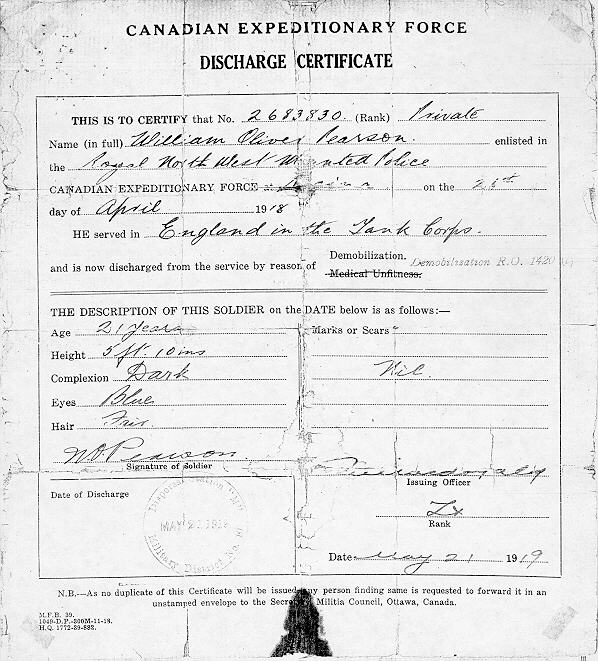 CANADIAN EXPEDITIONARY FORCE
DISCHARGE CERTIFICATE
THIS IS TO CERTIFY that No. 2683830. (Rank) Private
Name (in full) William Oliver Pearson enlisted in
the Royal North West Mounted Police
CANADIAN EXPEDITIONARY FORCE at Regina on the 25th
day of April 1918
HE served in England in the Tank Corps.
and is now discharged from the service by reason of Demobilization. Demobilization R.O. 1420
Medical Unfitness.
THE DESCRIPTION OF THIS SOLDIER on the DATE below is as follows:—
Age 21 Years Marks or Scars
Height 5 ft. 10 ins
Complexion Dark Nil.
Eyes Blue
Hair Fair
W O Pearson.
Signature of Soldier
Issuing Officer
Lt
Rank
Date of Discharge
MAY 21 1919
Military District No. 10
Date May 21 1919
N.B.—As no duplicate of this Certificate will be issued any person finding same is requested to forward it in an
unstamped envelope to the Secretary Militia Council, Ottawa, Canada.
M.F.B. 39.
1049-D.P.-300M-11-18.
H.Q. 1772-39-882.